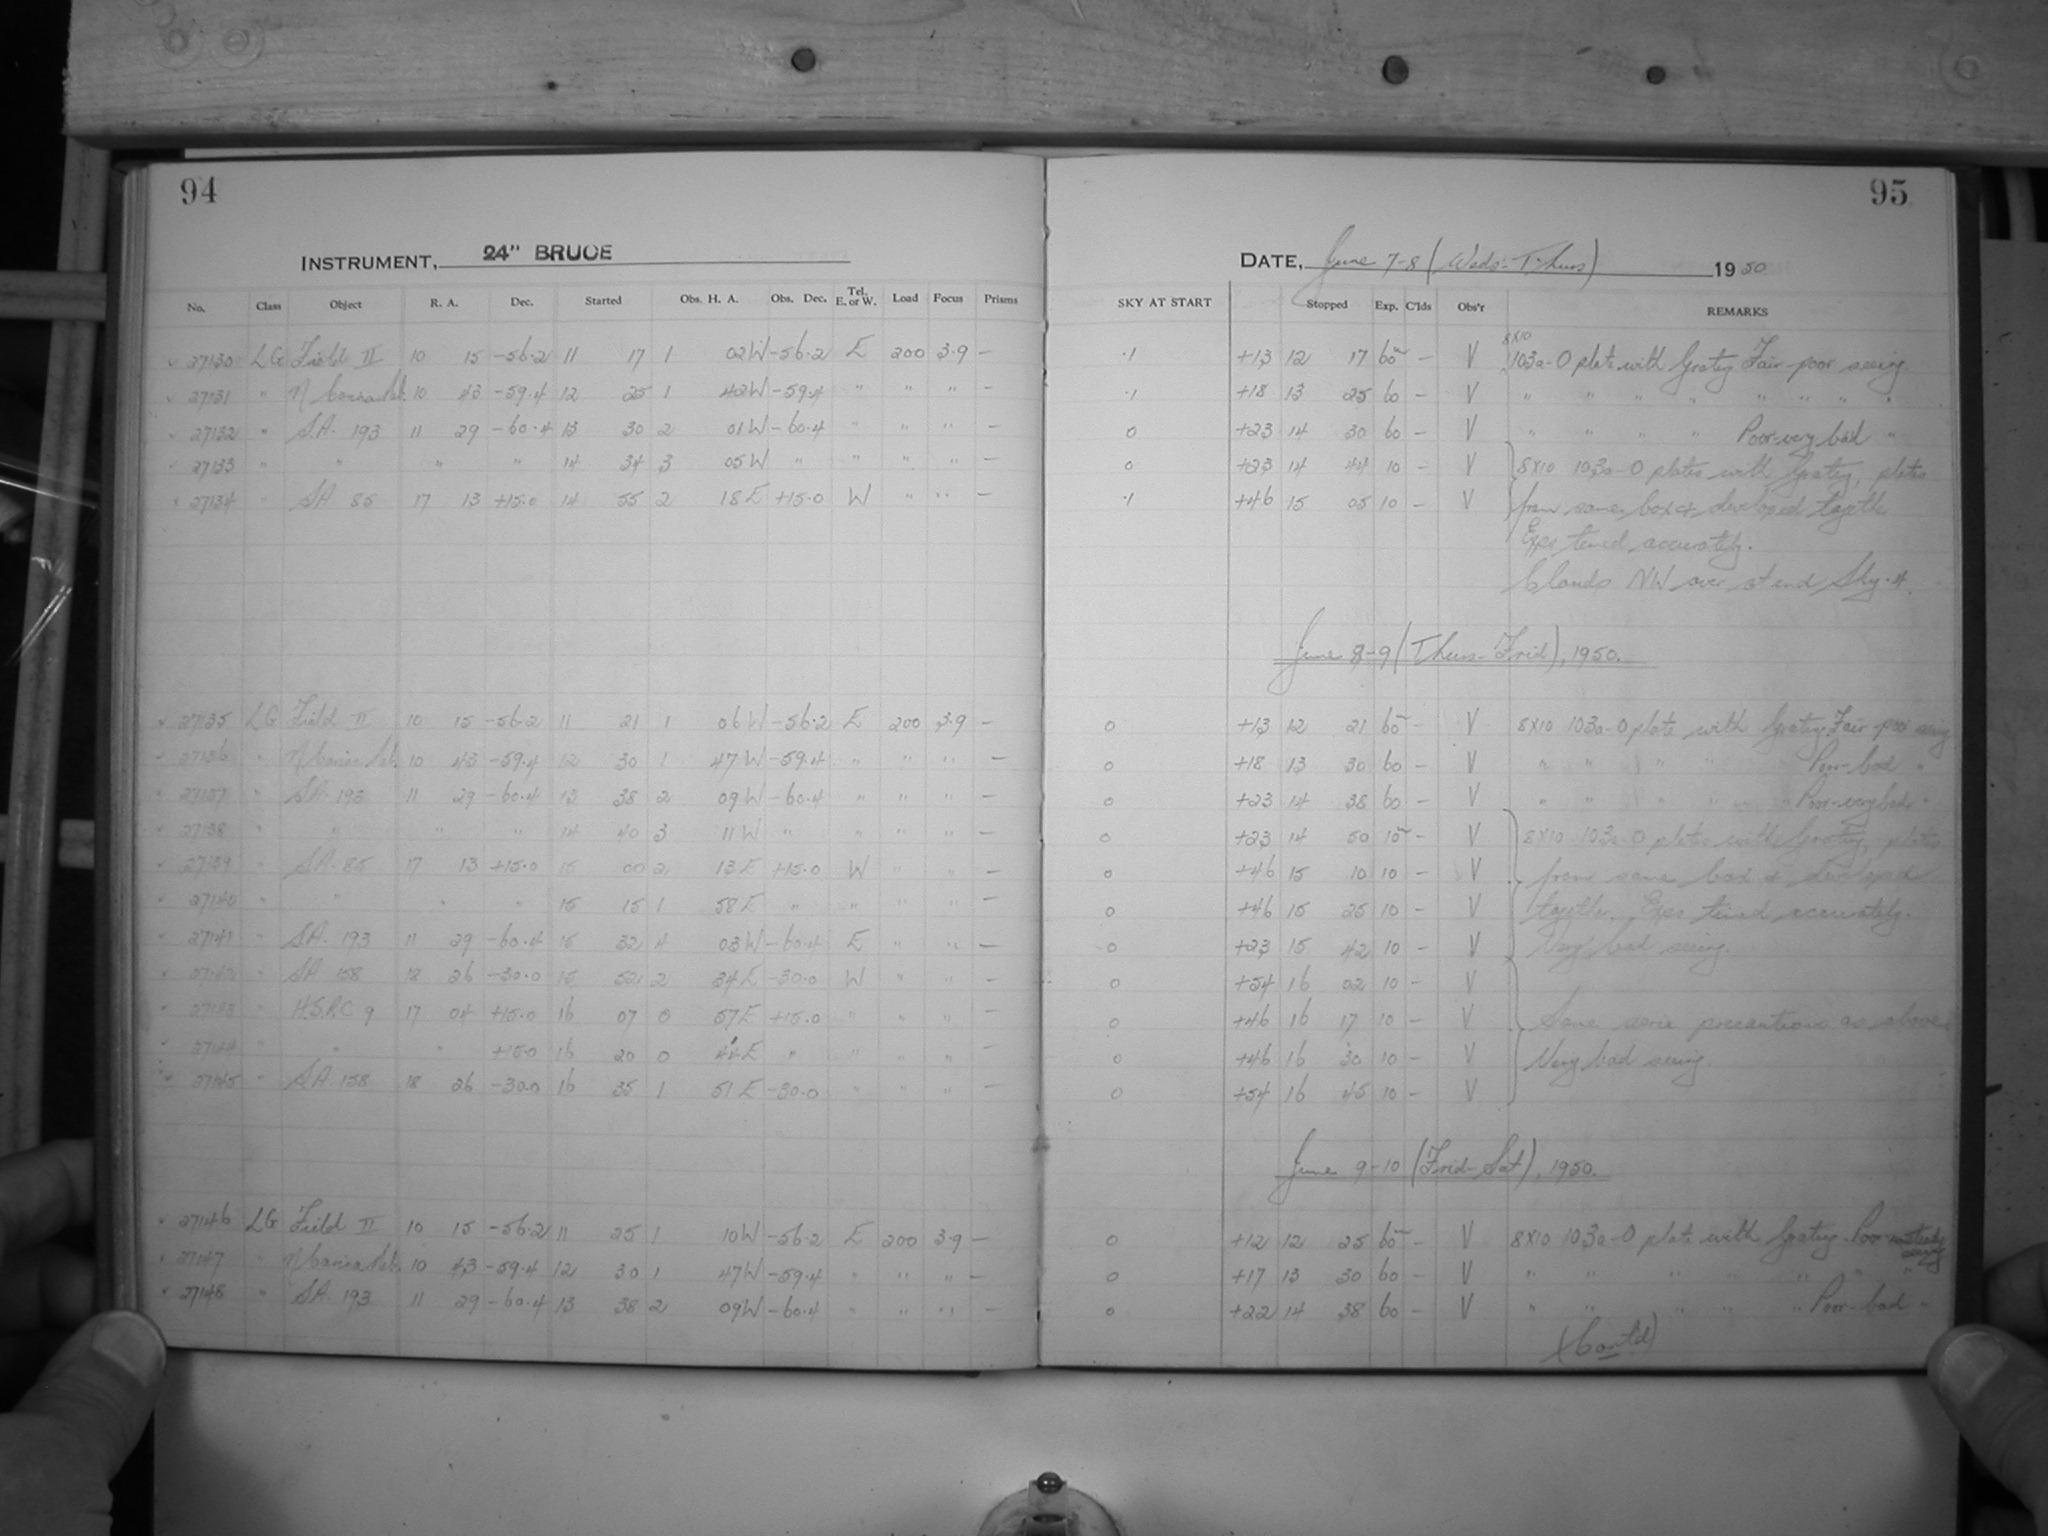 94
95
INSTRUMENT, 24" BRUCE
DATE, June 7-8 (Weds-Thurs) 1950
No. Class Object R. A. Dec. Started Obs. H. A. Obs. Dec. Tel. E. or W. Load Focus Prisms SKY AT START Stopped Exp. C'lds Obs'r REMARKS
27130 LG Field II 10 15 -56.2 11 17 1 02W -56.2 E 200 3.9 — .1 +13 12 17 60m — V 8x10 103a-O plate with Grating Fair-poor seeing
27131 " 10 43 -59.4 12 25 1 42W -59.4 " " " — .1 +18 13 25 60 — V " " " " " " " "
27132 " S.A. 193 11 29 -60.4 13 30 2 01W -60.4 " " " — 0 +23 14 30 60 — V " " " " Poor-very bad "
27133 " " " " 14 34 3 05W " " " " — 0 +23 14 44 10 — V 8x10 103a-O plates with Grating, plates
27134 " SA 85 17 13 +15.0 14 55 2 18E +15.0 W " " — .1 +46 15 05 10 — V from same box & developed together
Exps timed accurately.
Clouds NW over at end Sky .4.
June 8-9 (Thurs-Frid), 1950.
27135 LG Field II 10 15 -56.2 11 21 1 06W -56.2 E 200 3.9 — 0 +13 12 21 60m — V 8x10 103a-O plate with Grating. Fair-poor seeing
27136 " 10 43 -59.4 12 30 1 47W -59.4 " " " — 0 +18 13 30 60 — V " " " " Poor-bad "
27137 " SA. 193 11 29 -60.4 13 38 2 09W -60.4 " " " — 0 +23 14 38 60 — V " " " " " Poor-very bad "
27138 " " " " 14 40 3 11W " " " " — 0 +23 14 50 10m — V 8x10 103a-O plates with Grating, plates
27139 " S.A. 85 17 13 +15.0 15 00 2 13E +15.0 W " " — 0 +46 15 10 10 — V from same box & developed
27140 " " " " 15 15 1 58E " " " " — 0 +46 15 25 10 — V together. Exps timed accurately.
27141 " SA. 193 11 29 -60.4 15 32 4 03W -60.4 E " " — 0 +23 15 42 10 — V Very bad seeing.
27142 " SA 158 18 26 -30.0 15 52 2 34E -30.0 W " " — 0 +54 16 02 10 — V
27143 " H.S.P.C 9 17 04 +15.0 16 07 0 57E +15.0 " " " — 0 +46 16 17 10 — V Same precautions as above
27144 " " " +15.0 16 20 0 44E " " " " — 0 +46 16 30 10 — V Very bad seeing.
27145 " SA. 158 18 26 -30.0 16 35 1 51E -30.0 " " " — 0 +54 16 45 10 — V
June 9-10 (Frid-Sat), 1950.
27146 LG Field II 10 15 -56.2 11 25 1 10W -56.2 E 200 3.9 — 0 +12 12 25 60m — V 8x10 103a-O plate with Grating. Poor-unsteady seeing
27147 " 10 43 -59.4 12 30 1 47W -59.4 " " " — 0 +17 13 30 60 — V " " " " " " "
27148 " SA. 193 11 29 -60.4 13 38 2 09W -60.4 " " " — 0 +22 14 38 60 — V " " " " " Poor-bad "
(Contd)